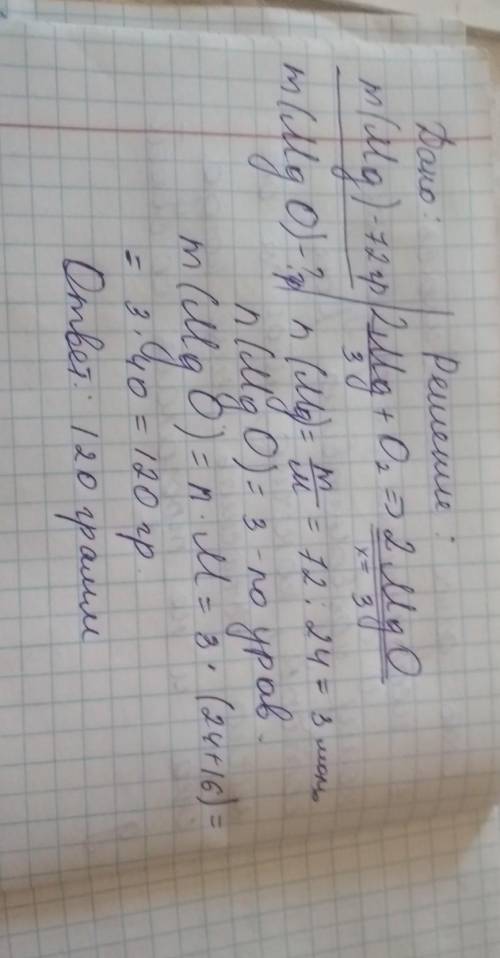 Дано:
Решение:
m(Mg)-72гр
2Mg + O₂ => 2MgO
3
x = 3
m(MgO)-? гр
n(Mg) = m/M = 72 : 24 = 3 моль
n(MgO) = 3 - по урав.
m(MgO) = n · M = 3 · (24+16) =
= 3 · 40 = 120 гр.
Ответ: 120 грамм